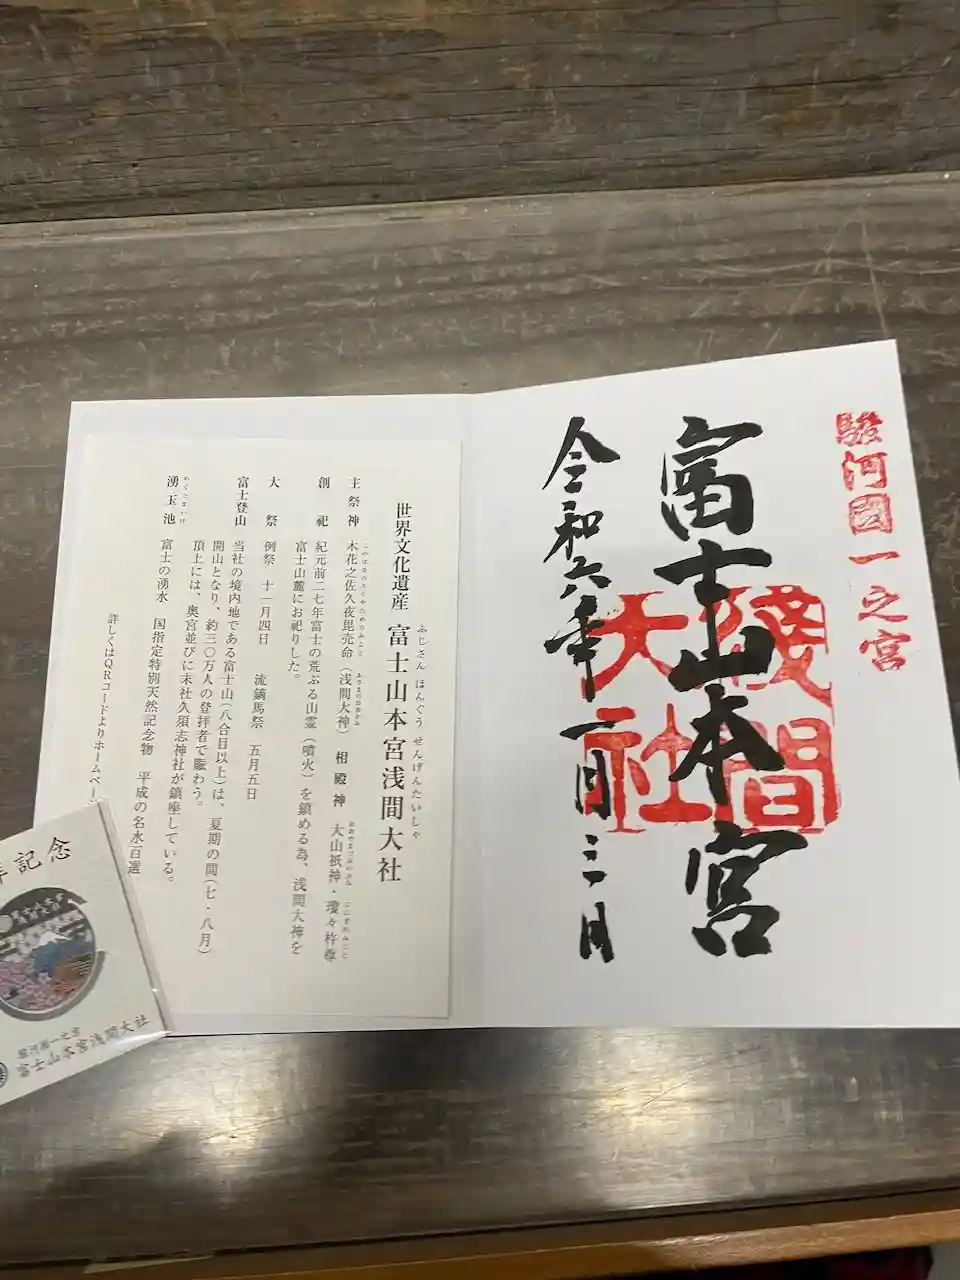 駿河國一之宮
富士山本宮
淺間大社
令和六年一月三日
世界文化遺産 富士山本宮浅間大社
ふじさん ほんぐう せんげんたいしゃ
主祭神 木花之佐久夜毘売命(浅間大神) 相殿神 大山祇神・瓊々杵尊
このはなのさくやひめのみこと あさまのおおかみ おおやまづみのかみ ににぎのみこと
創祀 紀元前二七年富士の荒ぶる山霊(噴火)を鎮める為、浅間大神を
富士山麓にお祀りした。
大祭 例祭 十一月四日 流鏑馬祭 五月五日
富士登山 当社の境内地である富士山(八合目以上)は、夏期の間(七・八月)
開山となり、約三〇万人の登拝者で賑わう。
頂上には、奥宮並びに末社久須志神社が鎮座している。
湧玉池 富士の湧水 国指定特別天然記念物 平成の名水百選
わくたまいけ
詳しくはQRコードよりホームペー
記念
駿河國一之宮
富士山本宮浅間大社